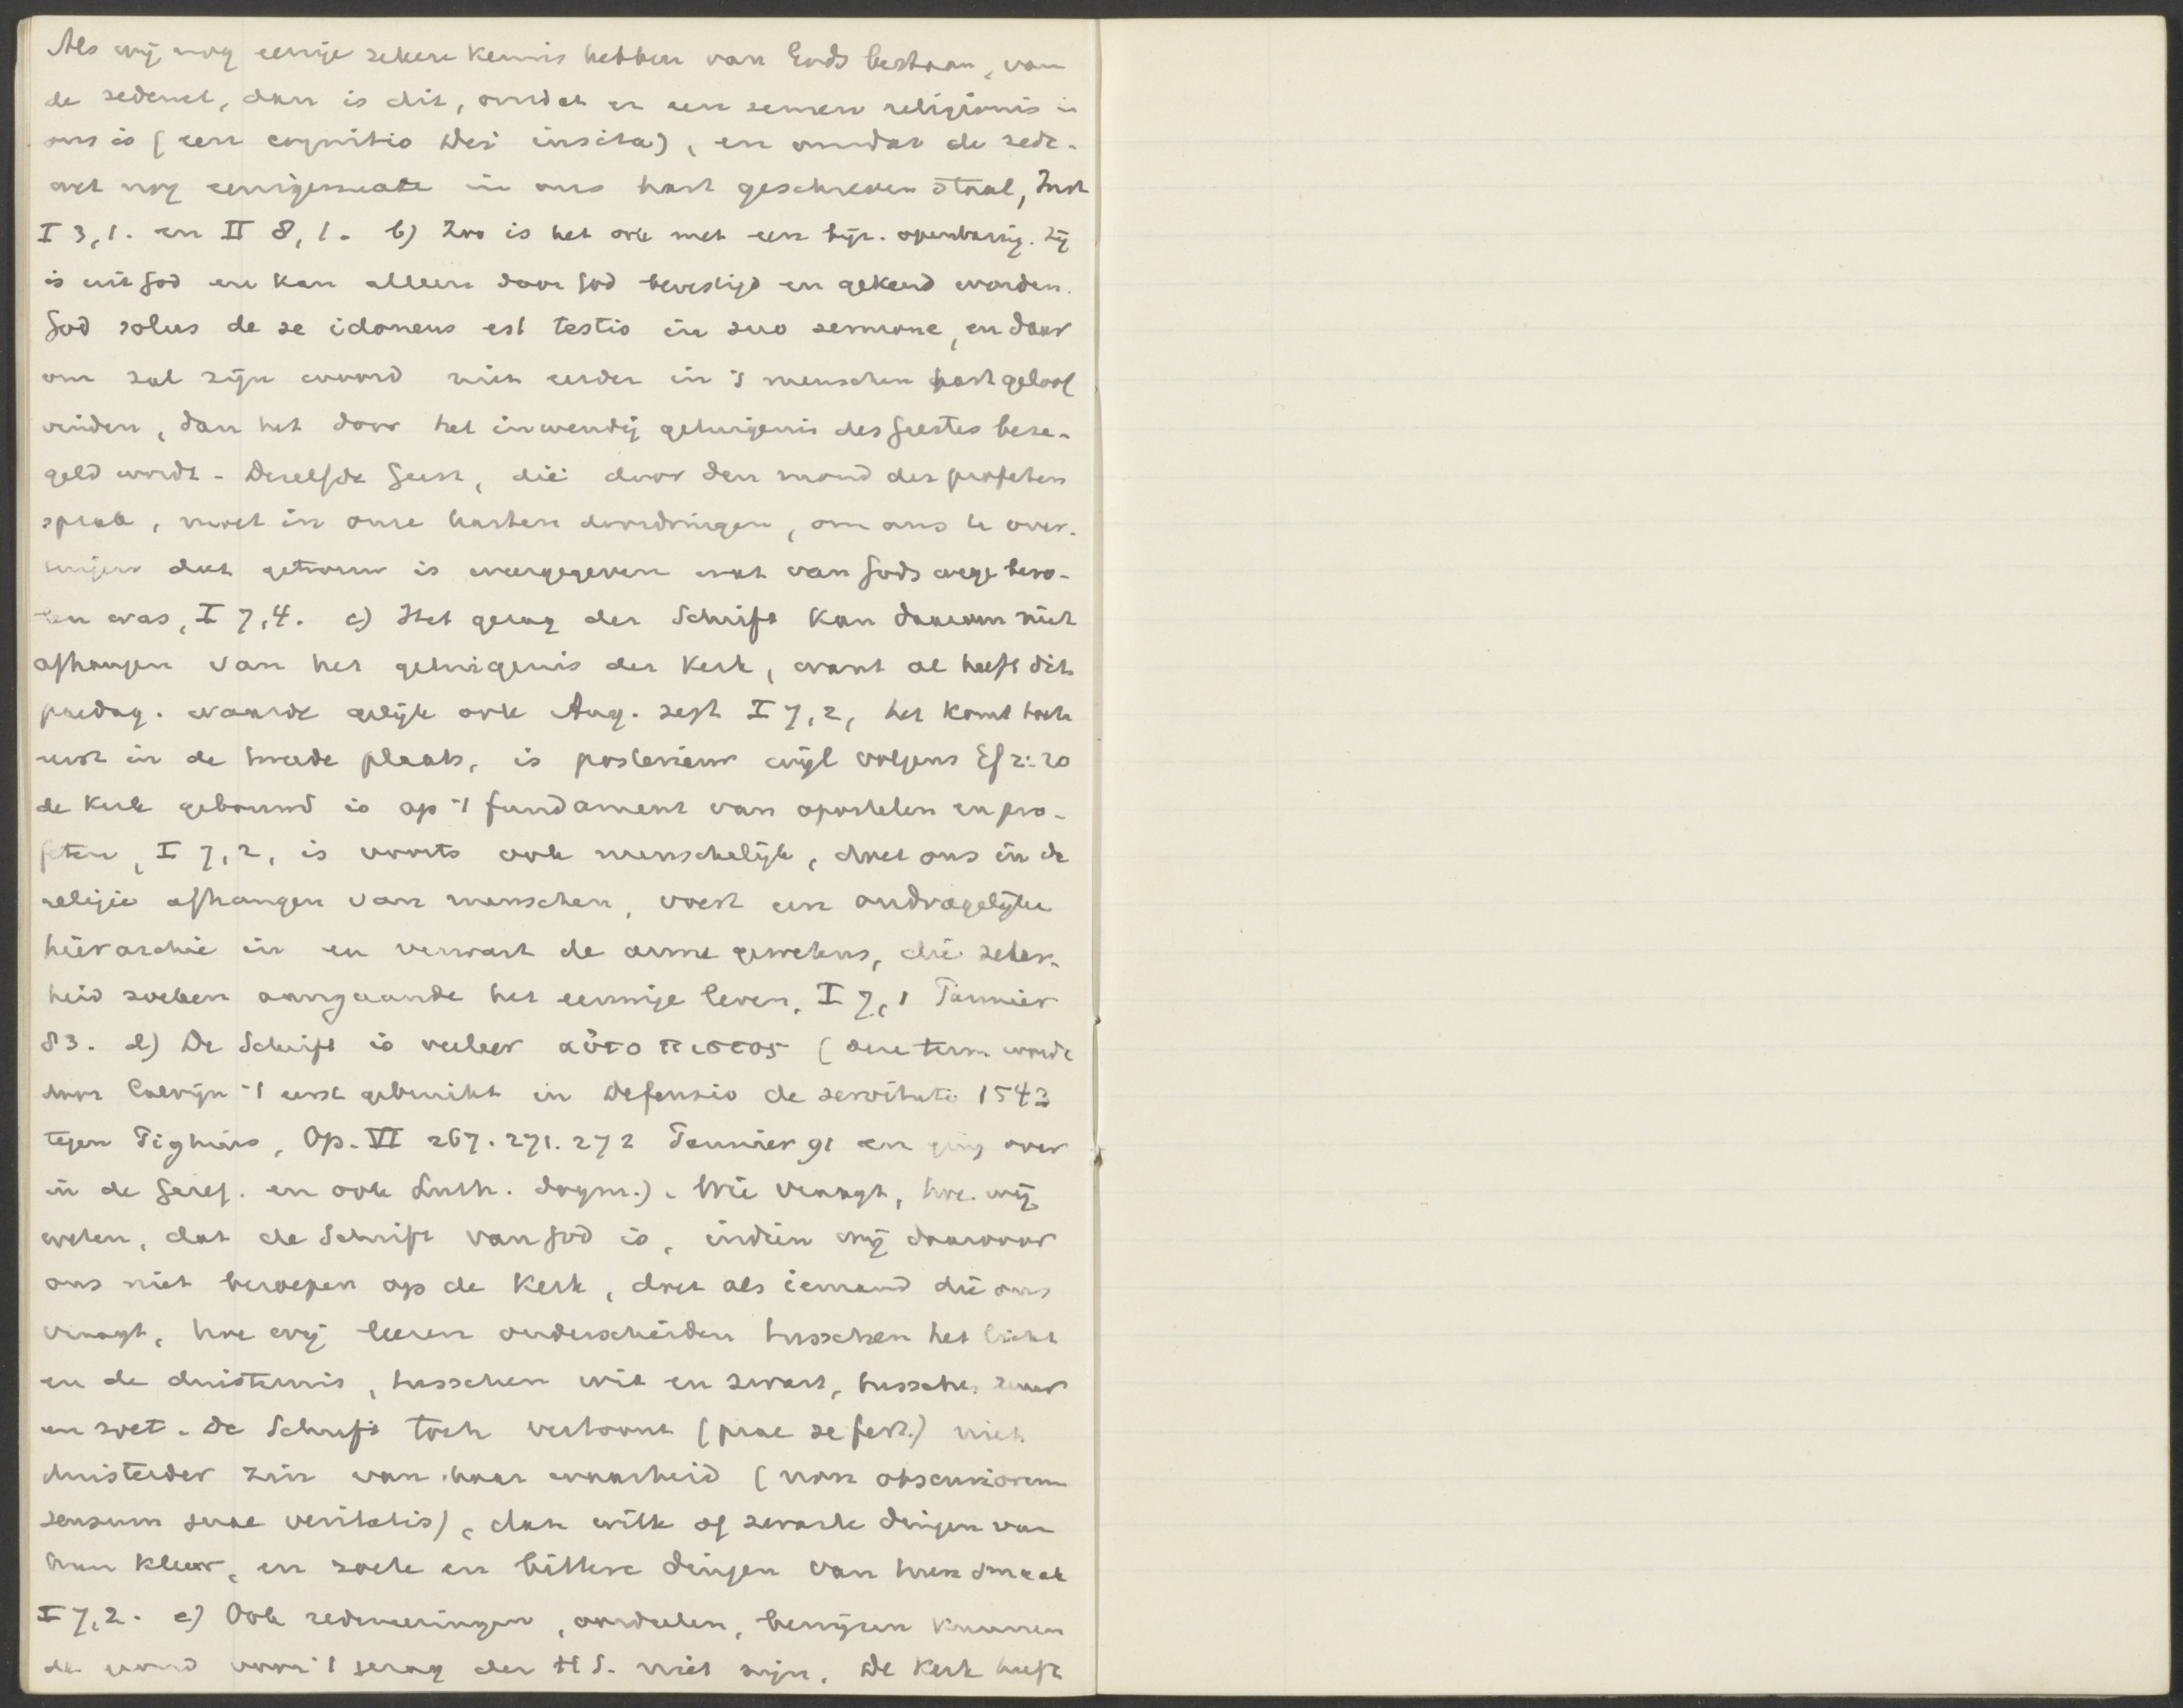 Als wij nog eenige zekere kennis hebben van Gods bestaan, van
de zedewet, dan is dit, omdat er een semen religionis in
ons is (een cognitio Dei insita), en omdat de zede-
wet nog eenigermate in ons hart geschreven staat, Inst
I 3,1. en II 8,1. b) Zoo is het ook met een bijz. openbaring. Zij
is uit God en kan alleen door God bevestigd en gekend worden.
God solus de se idoneus est testis in suo sermone, en daar
om zal zijn woord niet eerder in 's menschen hart geloof
vinden, dan het door het inwendig getuigenis des Geestes beze-
geld wordt. Dezelfde Geest, die door den mond der profeten
sprak, moet in onze harten doordringen, om ons te over-
tuigen dat getrouw is weergegeven wat van Gods wege bevo-
len was, I 7,4. c) Het gezag der Schrift kan daarom niet
afhangen van het getuigenis der kerk, want al heeft dit
paedag. waarde gelijk ook Aug. zegt I 7,2, het komt toch
eerst in de tweede plaats, is posterieur wijl volgens Ef 2:20
de kerk gebouwd is op 't fundament van apostelen en pro-
feten, I 7,2, is voorts ook menschelijk, doet ons in de
religie afhangen van menschen, voert een ondragelijke
hierarchie in en verwart de arme gewetens, die zeker-
heid zoeken aangaande het eeuwige leven, I 7,1 Pannier
83. d) De Schrift is veeleer αὐτοπιστος (deze term wordt
door Calvijn 't eerst gebruikt in Defensio de servitute 1543
tegen Pighius, Op. VI 267. 271. 272 Pannier 91 en ging over
in de Geref. en ook Luth. dogm.). Wie vraagt, hoe wij
weten, dat de Schrift van God is, indien wij daarvoor
ons niet beroepen op de kerk, doet als iemand die ons
vraagt, hoe wij leeren onderscheiden tusschen het licht
en de duisternis, tusschen wit en zwart, tusschen zuur
en zoet. De Schrift toch vertoont (prae se fert) niet
duisterder zin van haar waarheid (non obscuriorem
sensum suae veritatis), dan witte of zwarte dingen van
hun kleur, en zoete en bittere dingen van hun smaak
I 7,2. e) Ook redeneeringen, oordeelen, bewijzen kunnen
de grond voor 't gezag der H S. niet zijn. De kerk heeft